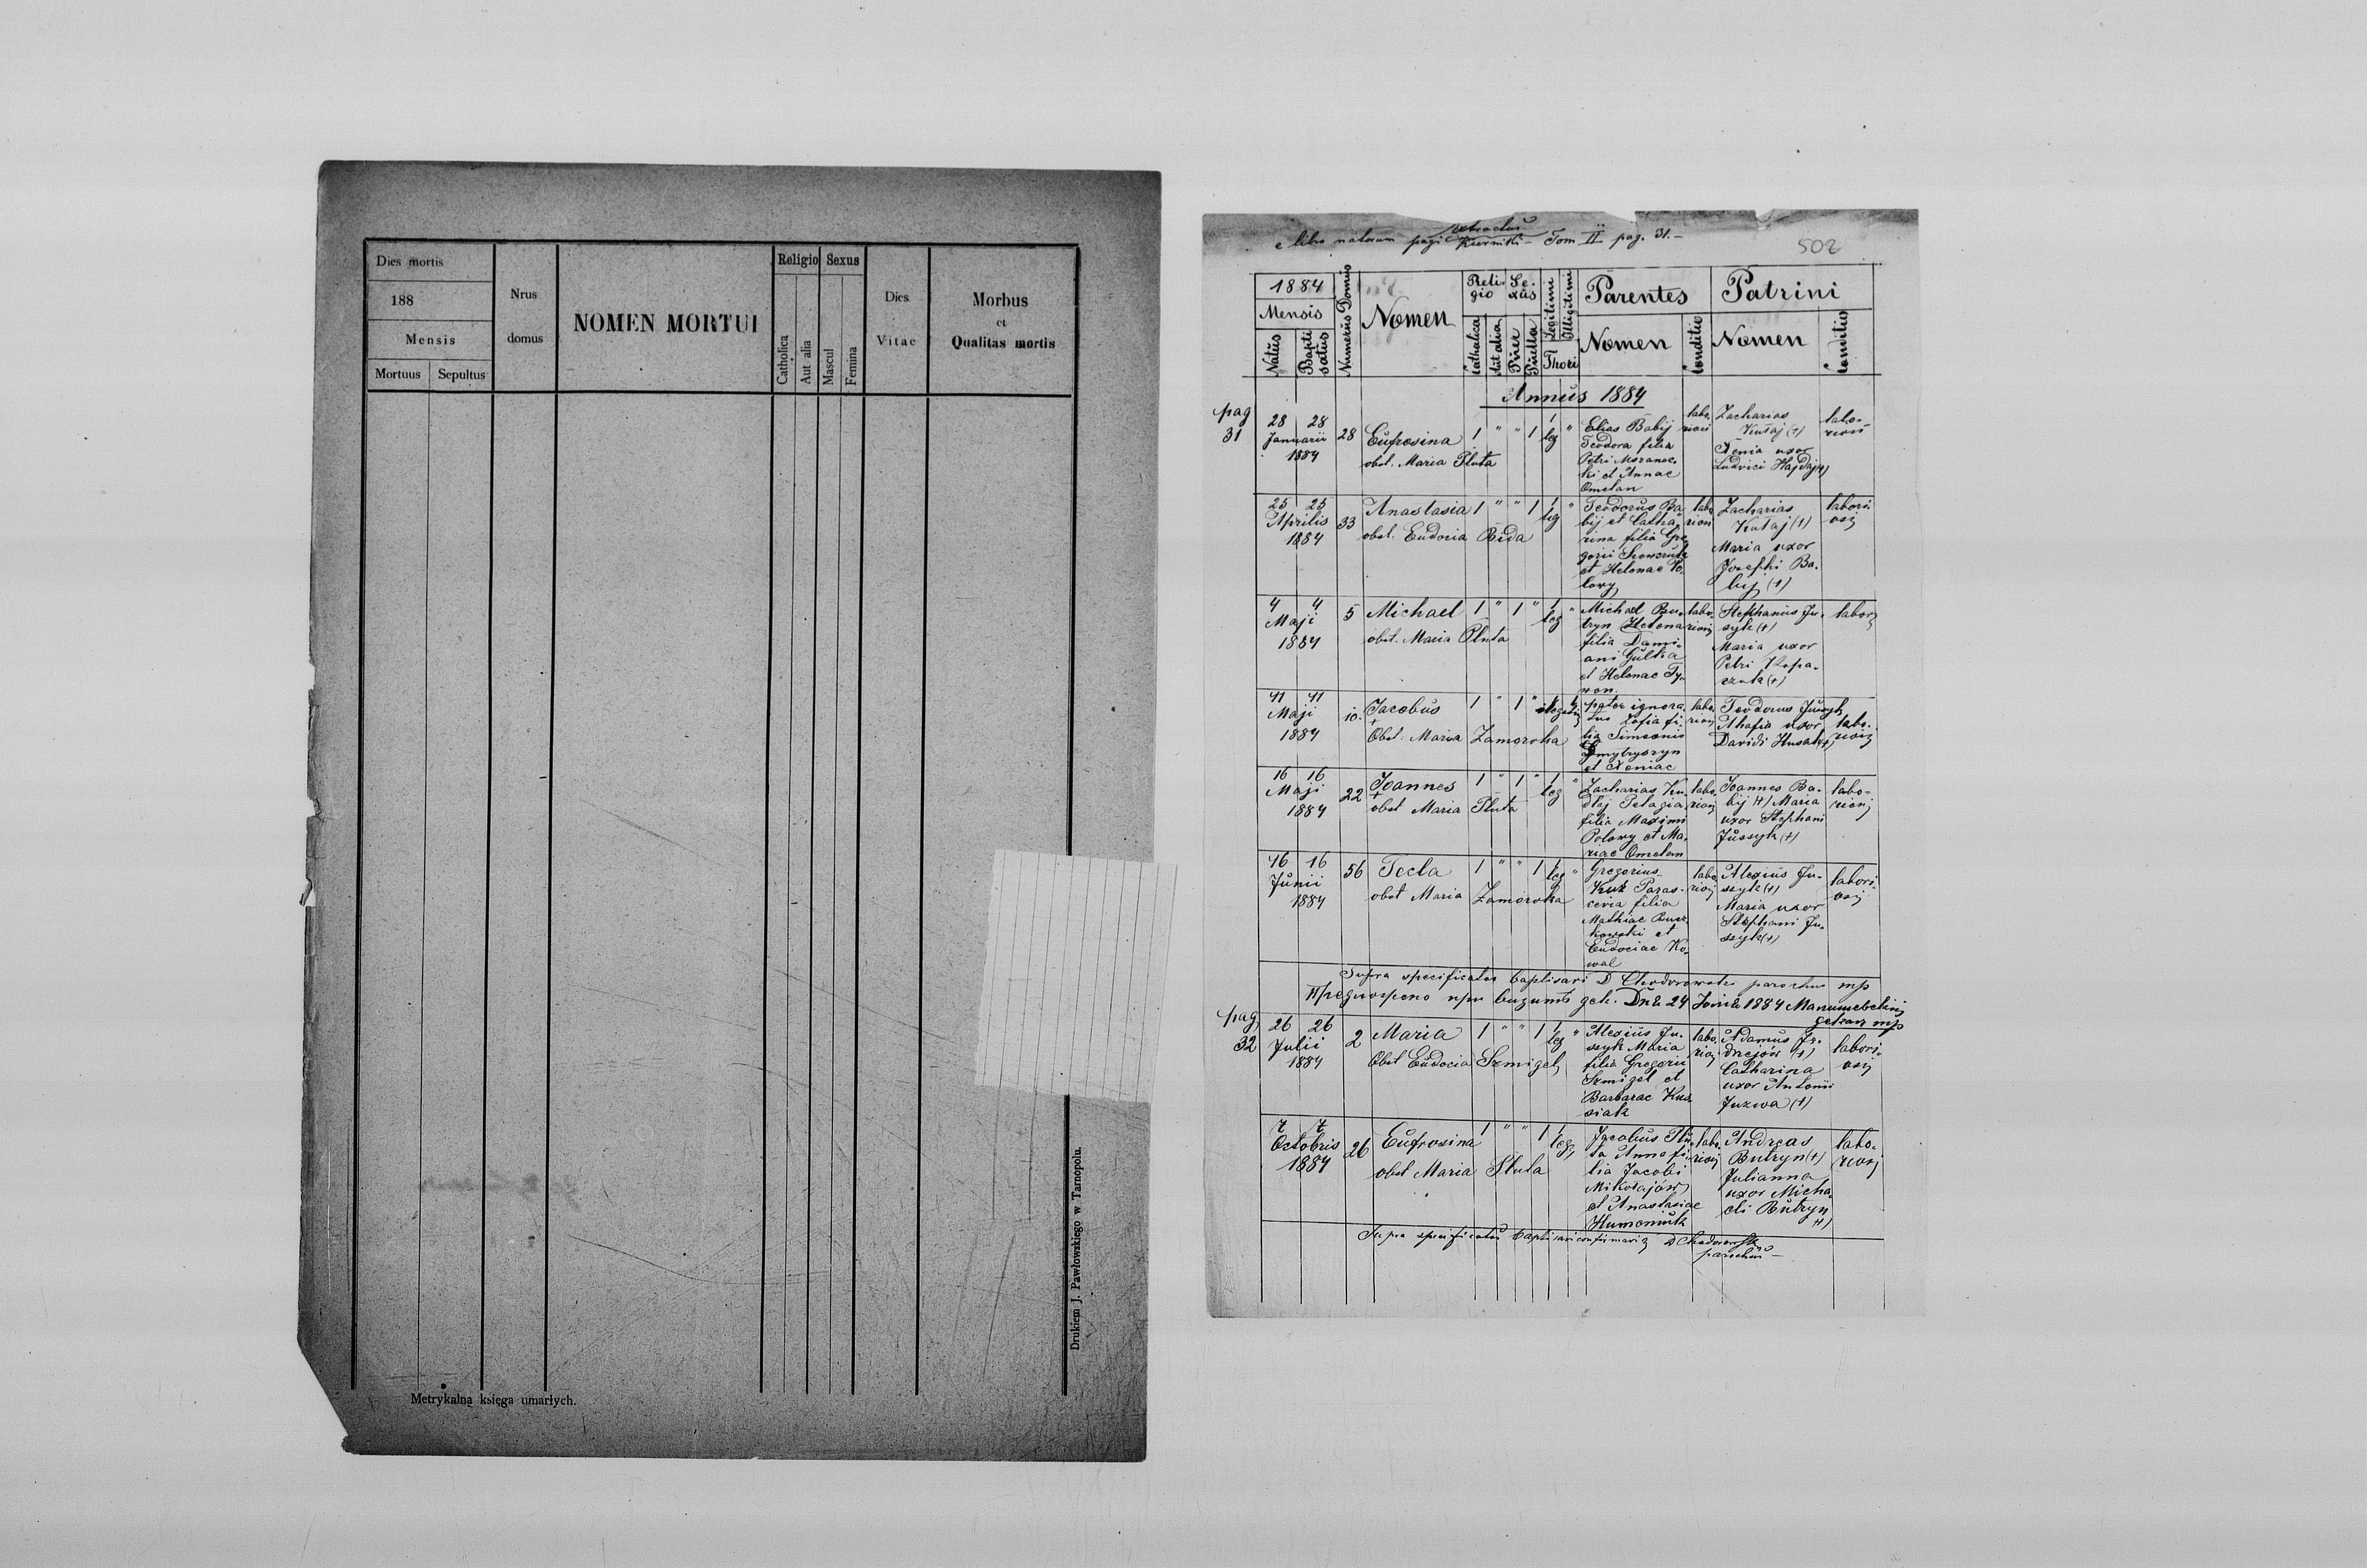 Dies mortis
188
Mensis
Mortuus Sepultus
Nrus
domus
NOMEN MORTUI
Religio Sexus
Catholica
Aut alia
Mascul
Femina
Dies
Vitae
Morbus
et
Qualitas mortis
Drukiem J. Pawłowskiego w Tarnopolu.
Metrykalna księga umarłych.
extractus
e libro natorum pagi Kurniki – Tom II pag. 31. –
502
1884
Mensis
Natus
Bapti
satus
Numerus Domus
Nomen
Reli
gio
Se-
xus
Catholica
Aut alia
Puer
Puella
Legitimi
Illegitimi
Thori
Parentes
Nomen
Conditio
Patrini
Nomen
Conditio
Annus 1884
pag
31
28 28
Januarii
1884
28
Eufrosina 1 " " 1 1 leg "
obst. Maria Pluta
Elias Babij
Teodora filia
Petri Mozanec-
ki et Annae
Omelan
labo-
riosi
Zacharias
Kutaj (+)
Xenia uxor
Ludvici Hajdaj (+)
labo-
riosi
25 25
Aprilis
1884
33
Anastasia 1 " " 1 1 leg "
obst. Eudoxia Bida
Teodorus Ba
bij et Catha-
rina filia Gre
gorii Szewczuk
et Helenae Po-
lowy
labo
riosi
Zacharias
Kutaj (+)
Maria uxor
Josephi Ba-
bij (+)
labori
osi
4 4
Maji
1884
5
Michael 1 " 1 " 1 leg "
obst. Maria Pluta
Michael Bu-
tryn Helena
filia Dami-
ani Gulka
et Helenae Ty-
labo-
riosi
Stephanus Ju-
szyk (+)
Maria uxor
Petri Kopa-
czuk (+)
labor
11 11
Maji
1884
10.
Jacobus 1 " 1 "
+
Obst. Maria Zamoroka
pater ignora-
tus Zofia fi-
lia Simeonis
Dmytryszyn
et Xeniae
labo-
riosi
Teodorus Juszyk
Ahafia uxor
Davidi Husak (+)
labo-
riosi
16 16
Maji
1884
22
Joannes 1 " 1 " 1 leg "
+
obst Maria Pluta
Zacharias Ku-
dlaj Pelagia
filia Maximi
Polowy et Ma-
riae Omelan
labo-
riosi
Joannes Ba-
bij (+) Maria
uxor Stephani
Juszyk (+)
labo-
riosi
16 16
Junii
1884
56
Tecla 1 " " 1 1 leg "
obst Maria Zamoroka
Gregorius
Kuk Paras-
cevia filia
Mathiae Bucz
kowski et
Eudociae Ko-
wal
labo
riosi
Alexius Ju-
szyk (+)
Maria uxor
Stephani Ju-
szyk (+)
labori-
osi
Supra specificatos baptisavi D Chodorowski parochus mp
24 1884
pag
32
26 26
Julii
1884
2
Maria 1 " " 1 1 leg "
Obst Eudocia Szmigel
Alexius Ju-
szyk Maria
filia Gregorii
Szmigel et
Barbarae Kus
ziak
labo-
riosi
Adamus
(+)
Catharina
uxor Antonii
Juzwa (+)
labori-
osi
7 7
Octobris
1884
26
Eufrosina 1 " " 1 1 leg
obst Maria Pluta
Jacobus Plu-
ta Anna fi-
lia Jacobi
Mikołajów
et Anastasiae
Humeniuk
labo-
riosi
Andreas
Butryn (+)
Julianna
uxor Micha
eli Butryn
(+)
labo-
riosi
Supra specificatos baptisavi confirmavi D Chodorowski
parochus –